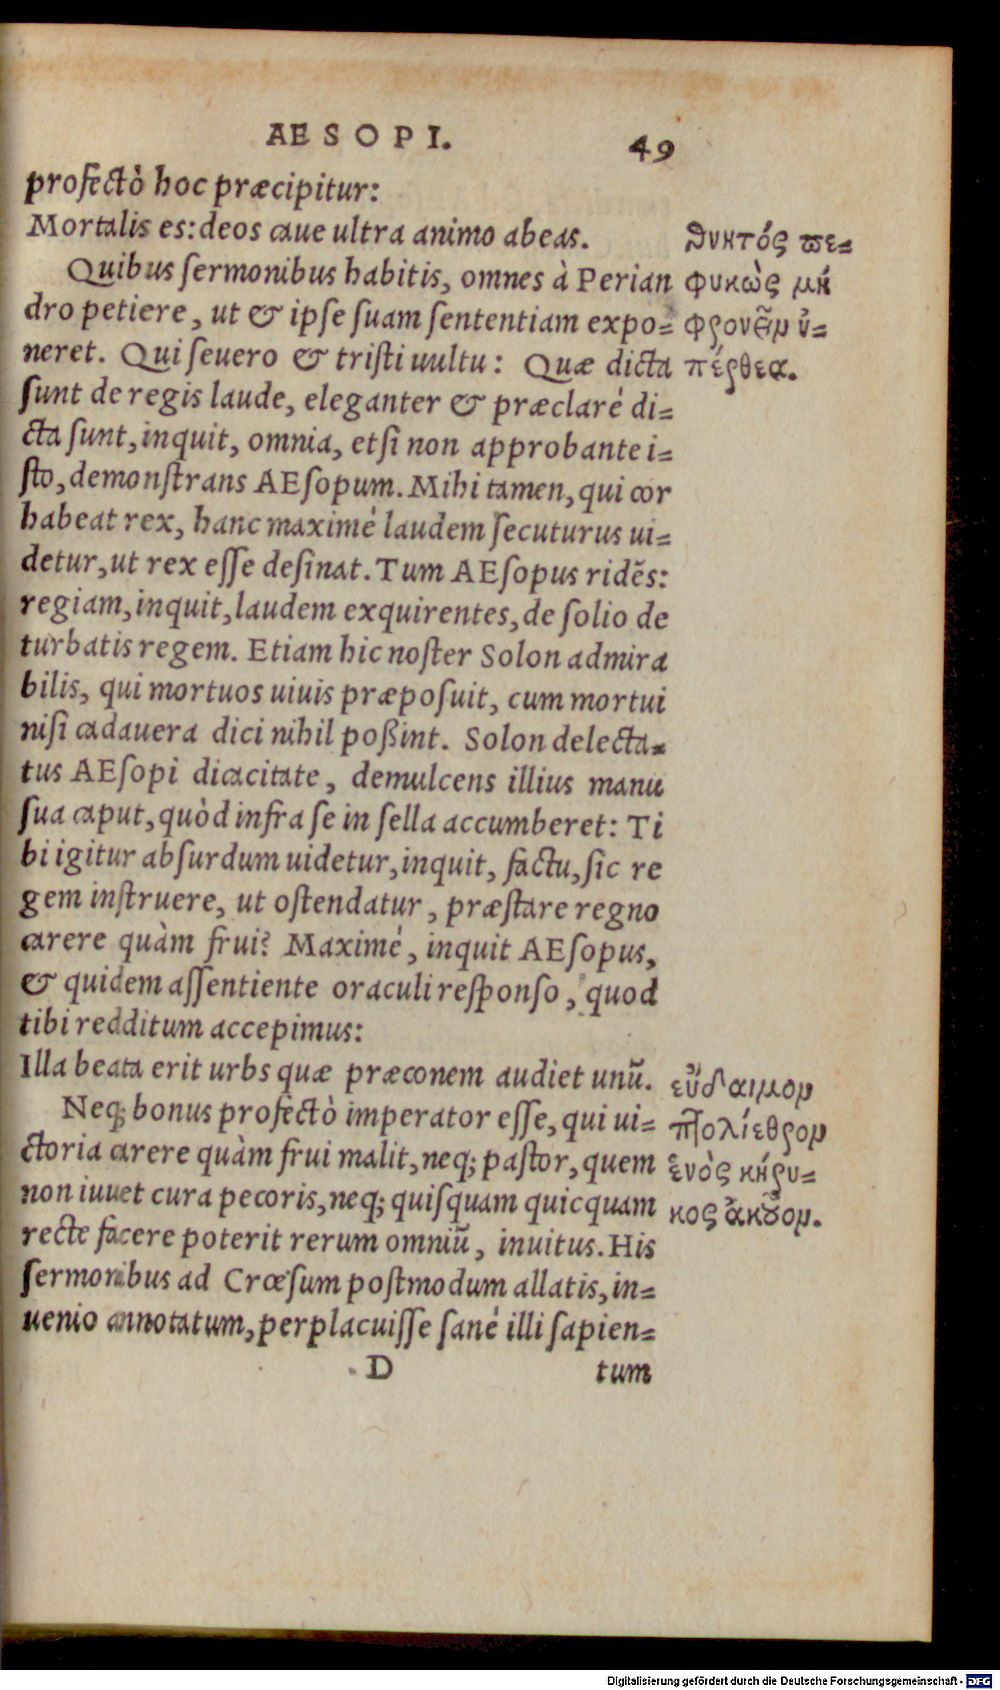 AESOPI. 49
profectò hoc præcipitur:
Mortalis es: deos caue ultra animo abeas.
Quibus sermonibus habitis, omnes à Perian
dro petiere, ut & ipse suam sententiam expo-
neret. Qui seuero & tristi uultu: Quæ dicta
sunt de regis laude, eleganter & præclaré di-
cta sunt, inquit, omnia, etsi non approbante i-
sto, demonstrans AEsopum. Mihi tamen, qui cor
habeat rex, hanc maximé laudem secuturus ui-
detur, ut rex esse desinat. Tum AEsopus ridēs:
regiam, inquit, laudem exquirentes, de solio de
turbatis regem. Etiam hic noster Solon admira
bilis, qui mortuos uiuis præposuit, cum mortui
nisi cadauera dici nihil poßint. Solon delecta-
tus AEsopi dicacitate, demulcens illius manu
sua caput, quòd infra se in sella accumberet: Ti
bi igitur absurdum uidetur, inquit, factu, sic re
gem instruere, ut ostendatur, præstare regno
carere quàm frui? Maximé, inquit AEsopus,
& quidem assentiente oraculi responso, quod
tibi redditum accepimus:
Illa beata erit urbs quæ præconem audiet unū.
Neq; bonus profectò imperator esse, qui ui-
ctoria carere quàm frui malit, neq; pastor, quem
non iuuet cura pecoris, neq; quisquam quicquam
recte facere poterit rerum omniū, inuitus. His
sermonibus ad Crœsum postmodum allatis, in-
uenio annotatum, perplacuisse sané illi sapien-
D tum
θνητός πε-
φυκὼς μή
φρονεῖν ὑ-
πέρθεα.
εὔδαιμον
πτολίεθρον
ἑνὸς κήρυ-
κος ἆκουον.
Digitalisierung gefördert durch die Deutsche Forschungsgemeinschaft - DFG